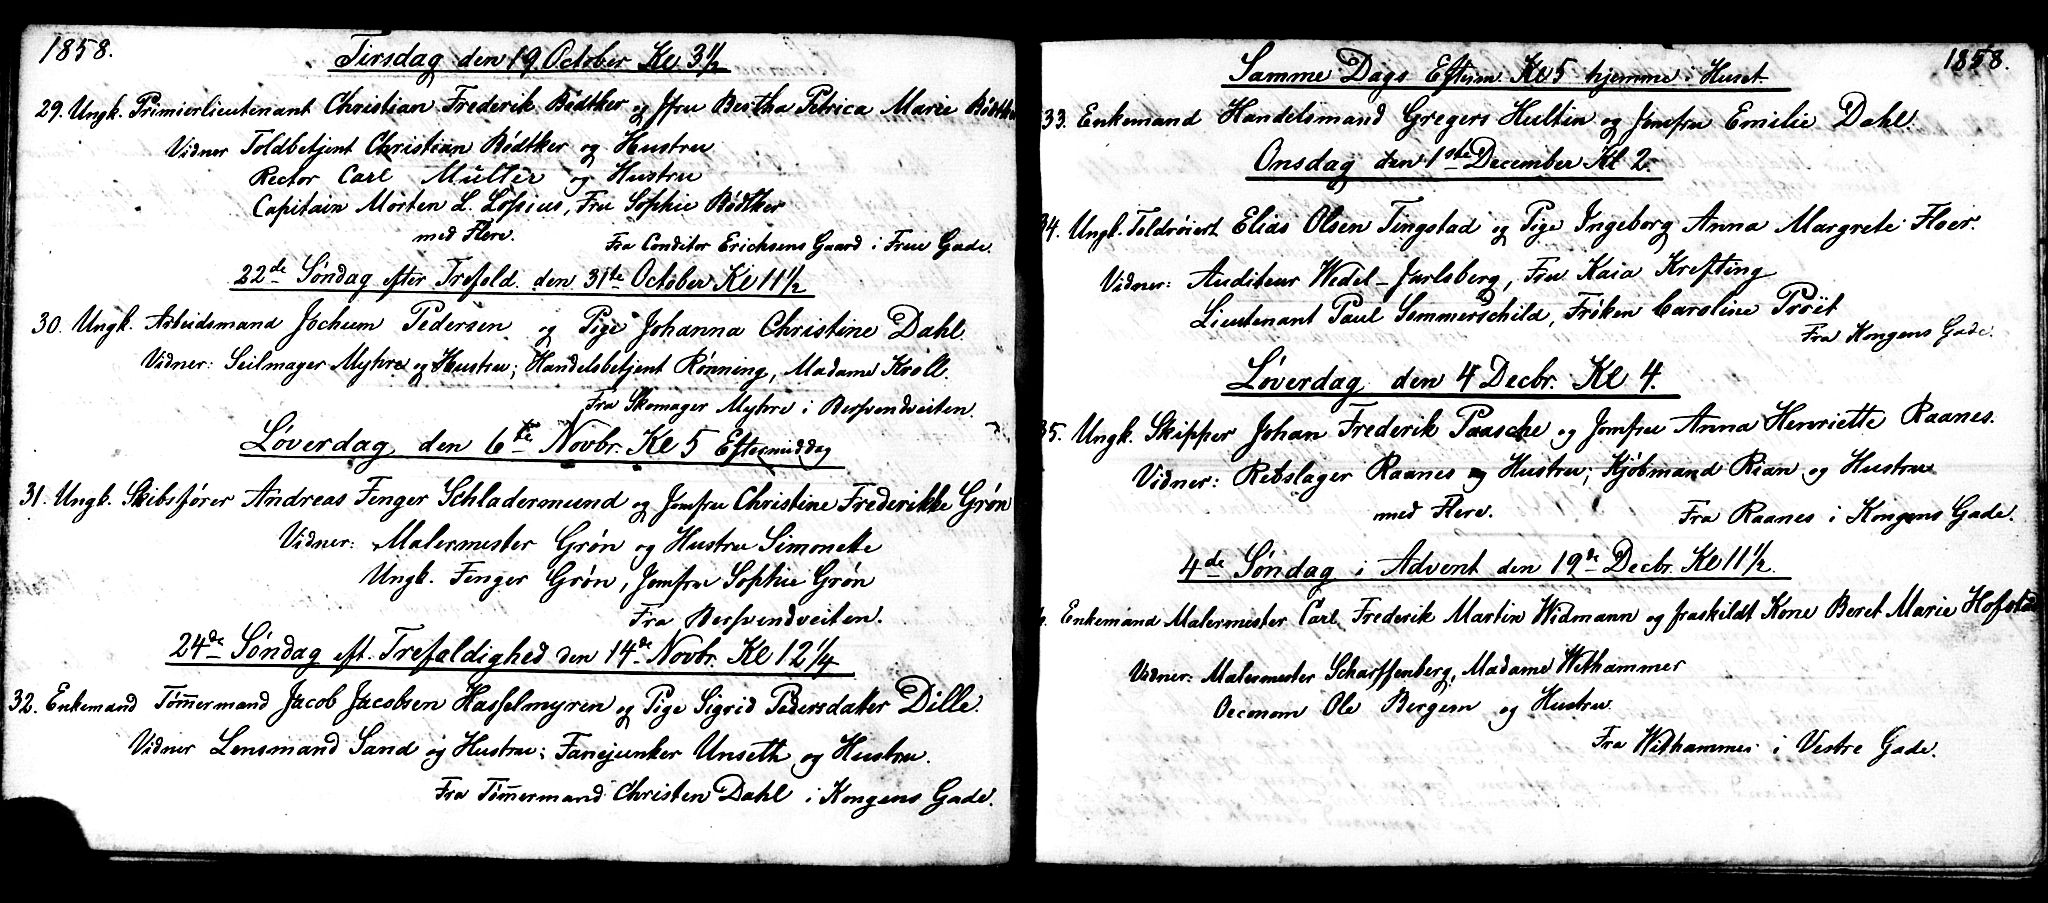 1858.
Tirsdag den 19. October Kl. 3½
29. Ungk. Primierlieutenant Christian Frederik Bødtker og Jfru Bertha Petrica Marie Bødtker
Vidner Toldbetjent Christian Bødtker og Hustru
Rector Carl Müller og Hustru
Capitain Morten L. Lossius, Fru Sophie Bødtker
med Flere.
Fra Conditor Erichsens Gaard i Frue Gade.
22de Søndag efter Trefold. den 31te October Kl 11½
30. Ungk. Arbeidsmand Jochum Pedersen og Pige Johanna Christine Dahl.
Vidner: Seilmager Myhre og Hustru; Handelsbetjent Rønning, Madame Kroll.
Fra Skomager Myhre i Bersvendveiten.
Løverdag den 6te Novbr. Kl 5 Eftermiddag
31. Ungk. Skibsfører Andreas Fenger Schladermund og Jomfru Christine Frederikke Grøn
Vidner: Malermester Grøn og Hustru Simonette
Ungk. Fenger Grøn, Jomfru Sophie Grøn
Fra Bersvendveiten.
24de Søndag eft. Trefaldighed den 14de Novbr. Kl 12¼
32. Enkemand Tømmermand Jacob Jacobsen Hasselmyren og Pige Sigrid Pedersdatter Dille.
Vidner Lensmand Sand og Hustru; Fanejunker Unseth og Hustru.
Fra Tømmermand Christen Dahl i Kongens Gade.
1858.
Samme Dags Efterm. Kl 5 hjemme i Huset
33. Enkemand Handelsmand Gregers Hultin og Jomfru Emilie Dahl.
Onsdag den 1ste December Kl 2.
34. Ungk. Toldrøiert Elias Olsen Tingstad og Pige Ingeborg Anna Margrete Floer.
Vidner: Auditeur Wedel-Jarlsberg, Fru Kaia Krefting
Lieutenant Paul Sommerschild, Frøken Caroline Pröit
Fra Kongens Gade.
Løverdag den 4 Decbr. Kl 4.
35. Ungk. Skipper Johan Frederik Paasche og Jomfru Anna Henriette Raanes.
Vidner: Rebslager Raanes og Hustru; Kjöbmand Rian og Hustru
med Flere.
Fra Raanes i Kongens Gade.
4de Søndag i Advent den 19de Decbr. Kl 11½.
Enkemand Malermester Carl Frederik Martin Widmann og fraskildt Kone Beret Marie Hofstad
Vidner: Malermester Scharffenberg, Madame Withammer
Oeconom Ole Bergem og Hustru
Fra Withammer i Vestre Gade.